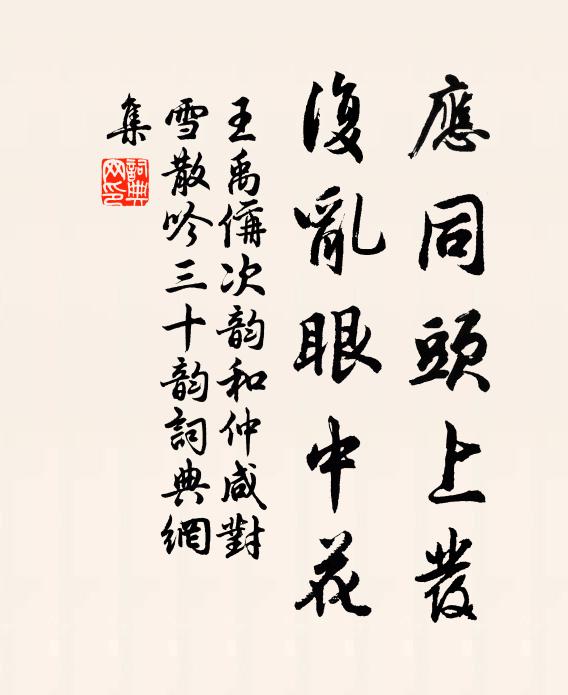 應同頭上發
復亂眼中花
王禹偁次韵和仲咸對
雪散吟三十韵詞典網
集
詞典網印